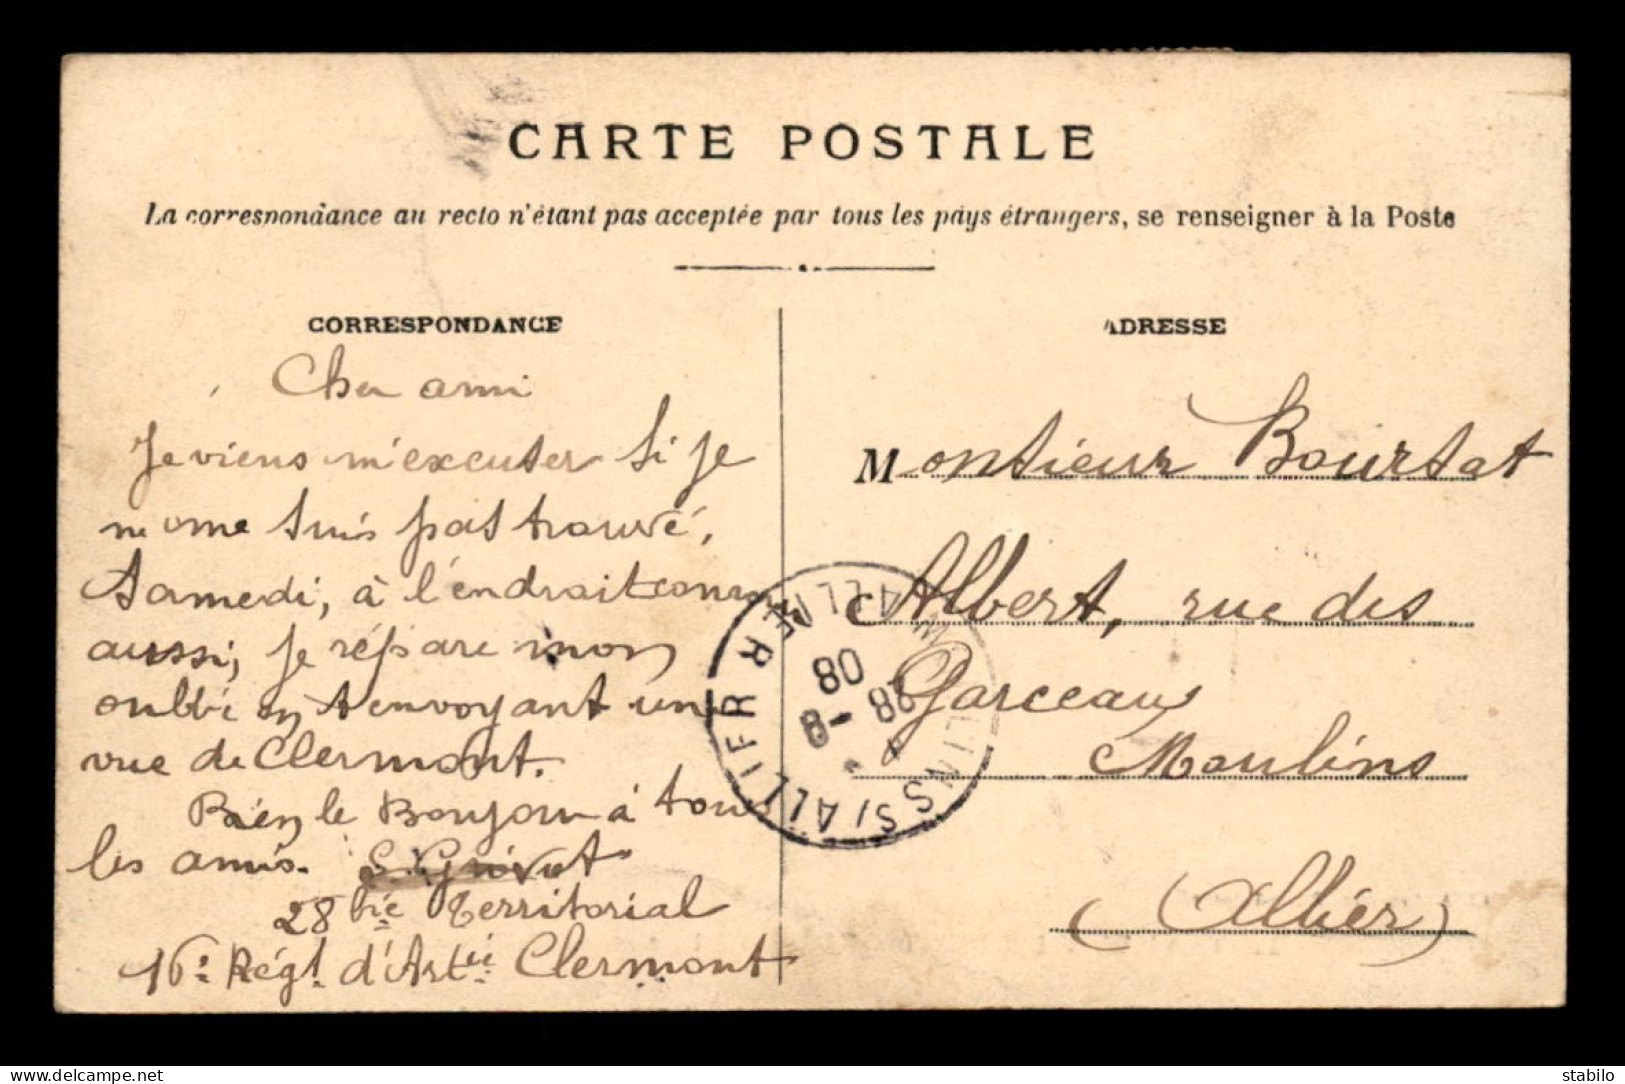 CARTE POSTALE
La correspondance au recto n'étant pas acceptée par tous les pays étrangers, se renseigner à la Poste
CORRESPONDANCE
Cher ami
Je viens m'executer si je
ne me suis pas trouvé,
Samedi, à l'endroit connu
aussi, je répare mon
oubli en t'envoyant une
vue de Clermont.
Bien le Bonjour à tous
les amis.
28 bie Territorial
16e Régt d'Artie Clermont
ADRESSE
Monsieur Bourtat
Albert, rue des
Garceaux
Moulins
(Allier)
MOULINS S/ ALLIER ALLIER
8-
28
08
www.delcampe.net
stabilo